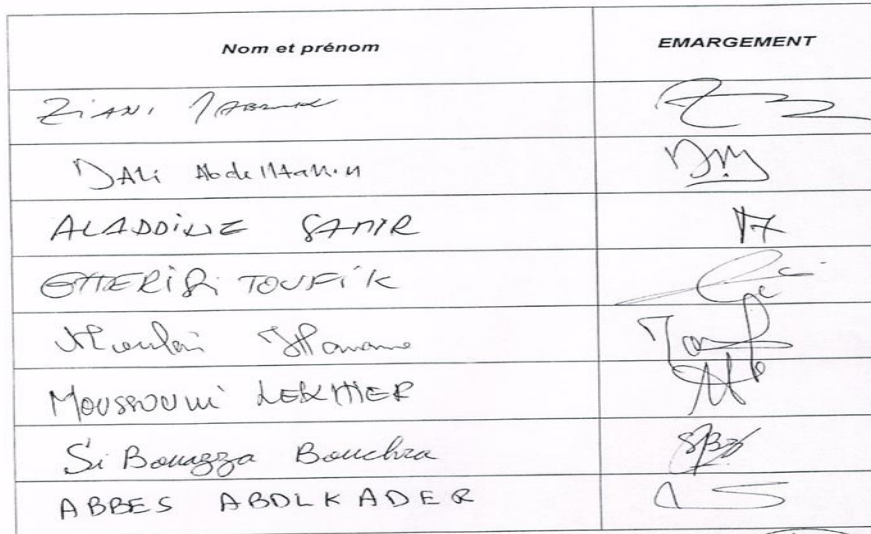 Nom et prénom EMARGEMENT
ZiANi
DALi Abdelhakim
ALADDiNE SAMIR
GHERiBi TOUFiK
Moulai
MOUSSOUNi LEKHIER
Si Bouazza Bouchra
ABBES ABDLKADER